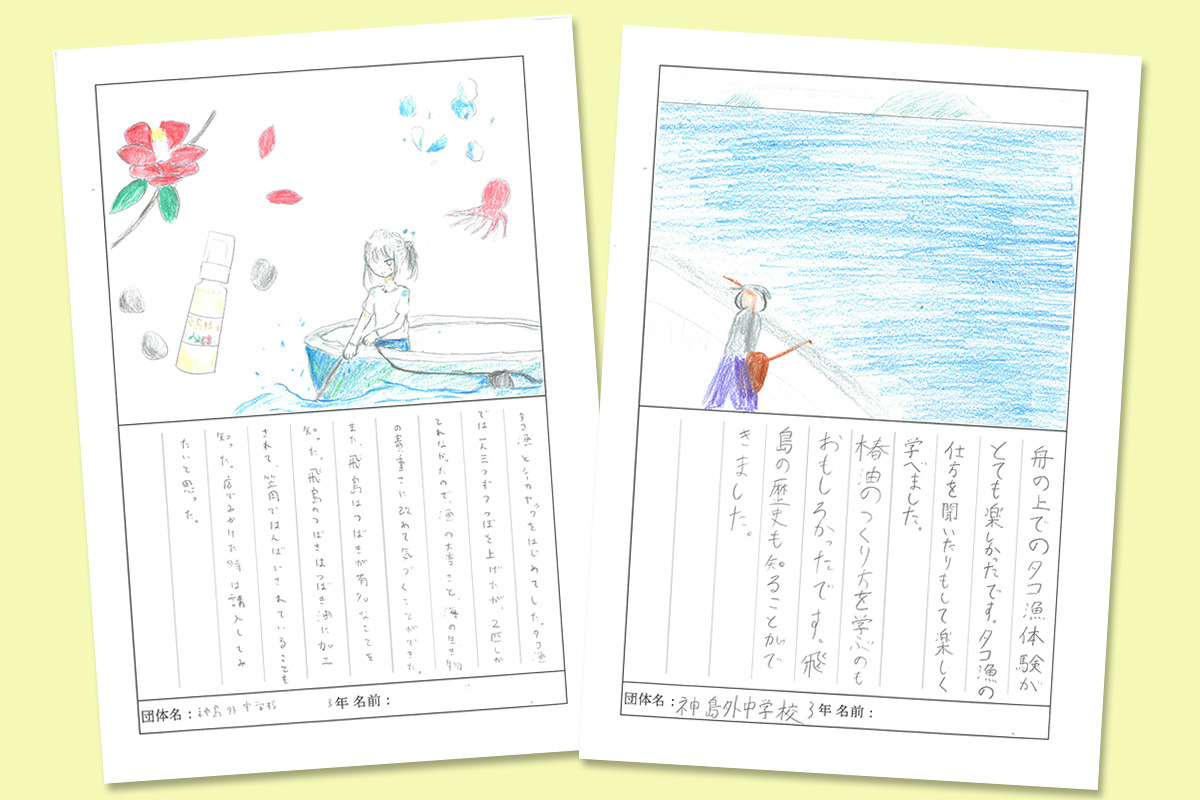 タコ漁とシーカヤックをはじめてした。タコ漁
では一人三つずつつぼを上げたが、2匹しか
とれなかったので、漁の大変さと、海の生き物
の貴重さに改めて気づくことができた。
また、飛島はつばきが有名なことを
知った。飛島のつばきはつばき油に加工
されて、笠岡ではんばいされていることも
知った。店でみかけた時は講入してみ
たいと思った。
団体名：神島外中学校 3年 名前：
舟の上でのタコ漁体験が
とても楽しかったです。タコ漁の
仕方を聞いたりもして楽しく
学べました。
椿油のつくり方を学ぶのも
おもしろかったです。飛
島の歴史も知ることがで
きました。
団体名：神島外中学校 3年 名前：